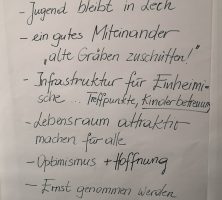 - Jugend bleibt in Lech
- ein gutes Miteinander
"alte Gräben zuschütten!"
- Infrastruktur für Einheimi-
sche ... Treffpunkte, Kinderbetreuung
- Lebensraum attraktiv
machen für alle
- Optimismus + Hoffnung
- Ernst genommen werden